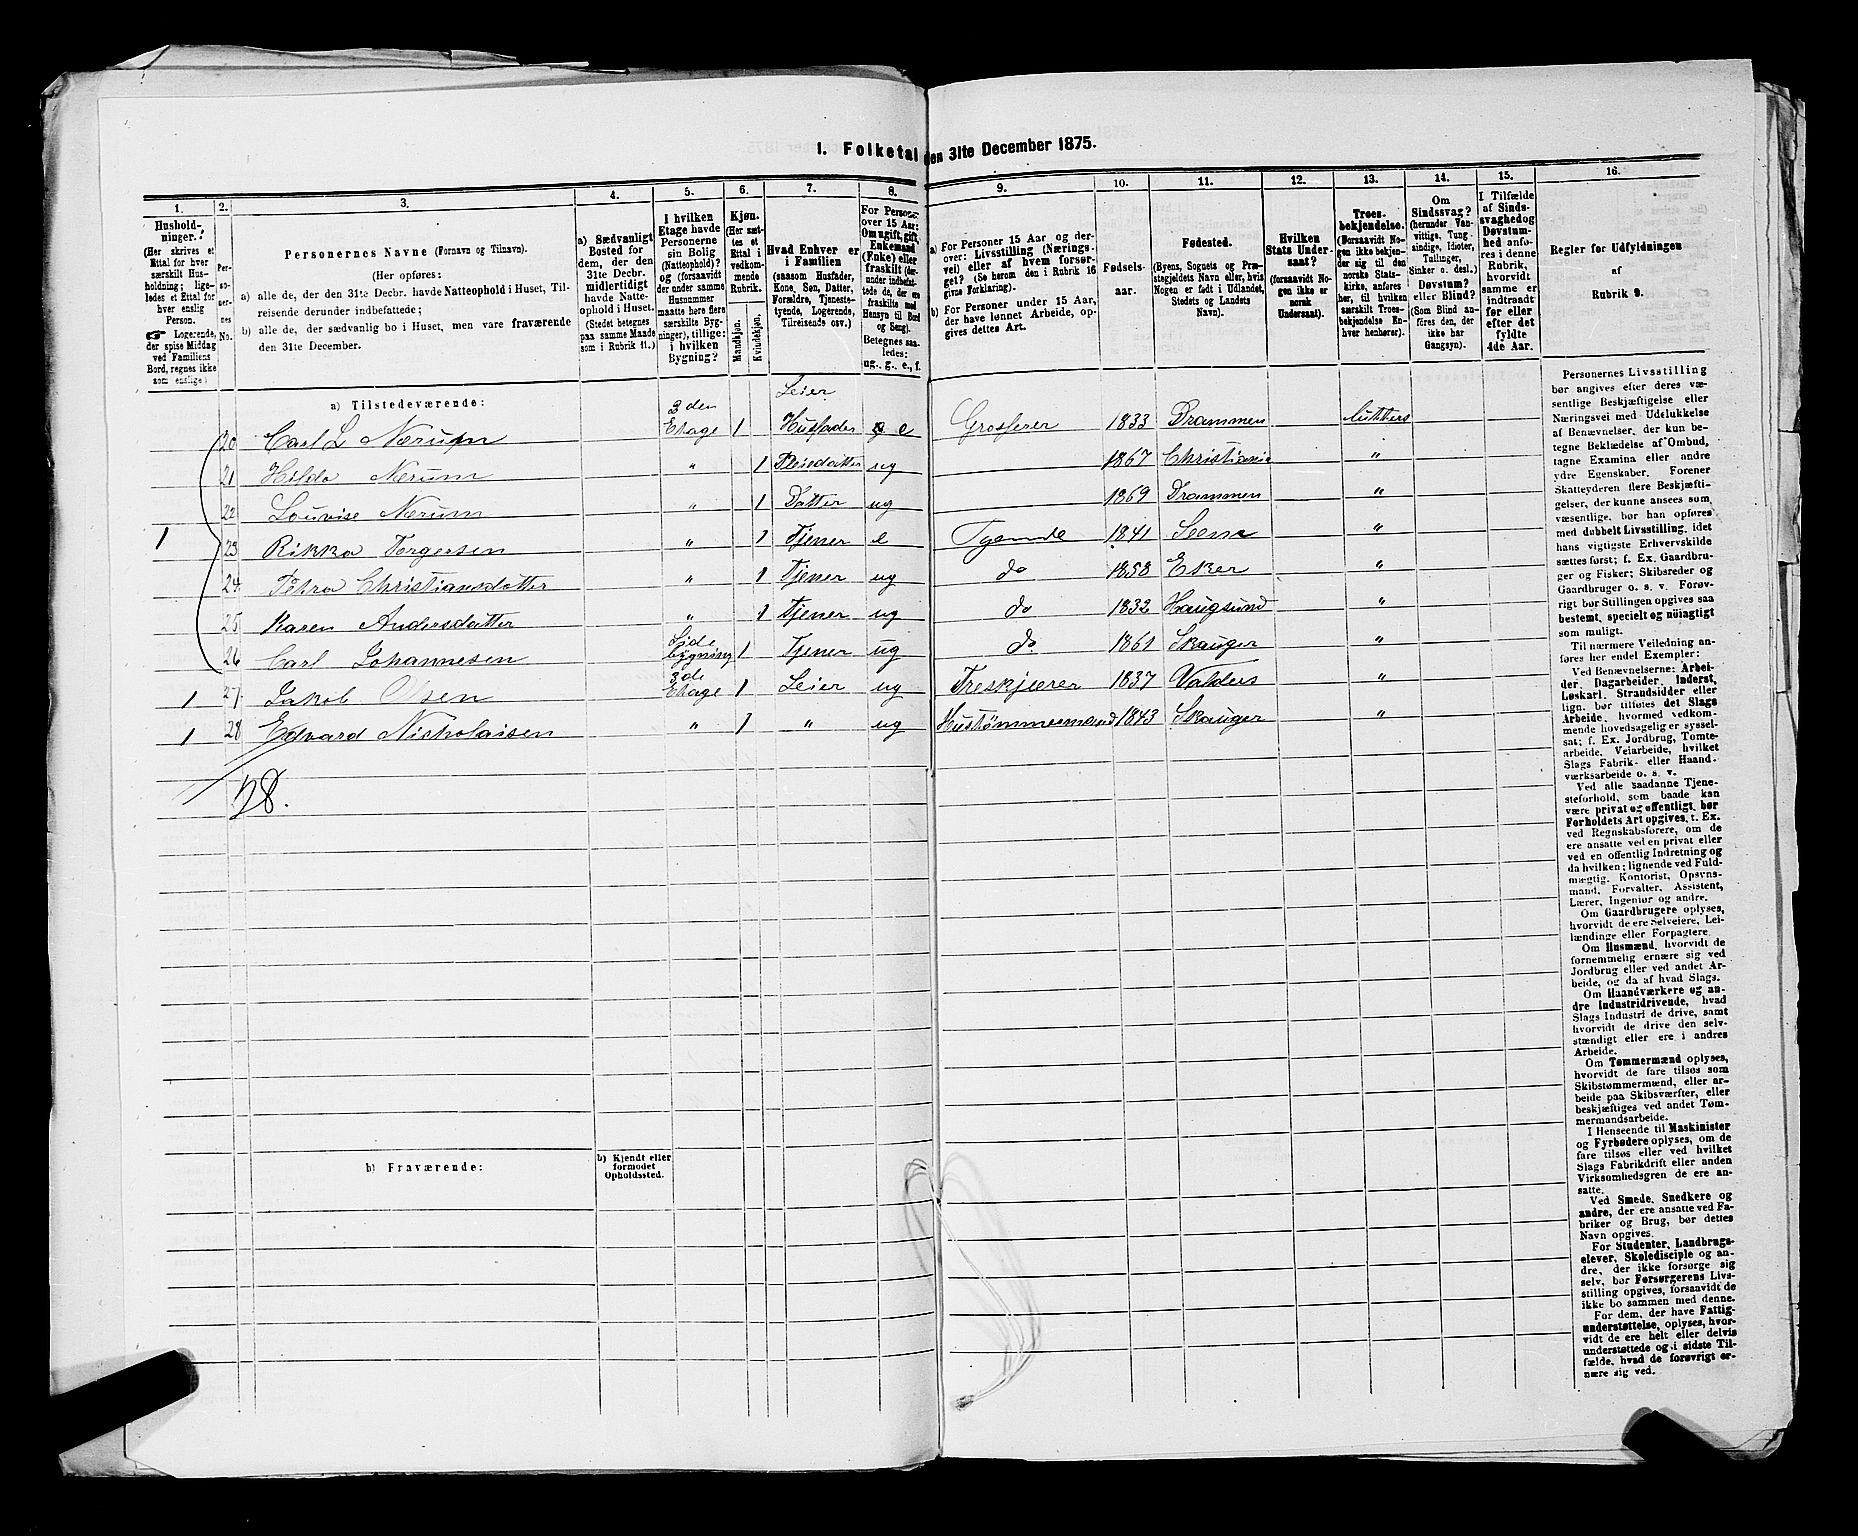 1. Folketal den 31te December 1875.
1. 2. 3. 4. 5. 6. 7. 8. 9. 10. 11. 12. 13. 14. 15. 16.
Hushold-
ninger.
(Her skrives et
Ettal for hver
særskilt Hus-
holdning; lige-
ledes et Ettal for
hver enslig
Person.
Logerende,
der spise Middag
ved Familiens
Bord, regnes ikke
som enslige)
Per-
so-
ner-
nes
No.
Personernes Navne (Fornavn og Tilnavn).
(Her opføres:
a) alle de, der den 31te Decbr. havde Natteophold i Huset, Til-
reisende derunder indbefattede;
b) alle de, der sædvanlig bo i Huset, men vare fraværende
den 31te December.
a) Sædvanligt
Bosted for
dem, der den
31te Decbr.
midlertidigt
havde Natte-
ophold i Huset.
(Stedet betegnes
paa samme Maade
som i Rubrik 11.)
I hvilken
Etage havde
Personerne
sin Bolig
(Natteophold)?
og (forsaavidt
der under samme
Husnummer
maatte høre flere
særskilte Byg-
ninger), tillige:
i hvilken
Bygning?
Kjøn.
(Her sæt-
tes et
Ettal i
vedkom-
mende
Rubrik.
Mandkjøn.
Kvindekjøn.
Hvad Enhver er
i Familien
(saasom Husfader,
Kone, Søn, Datter,
Forældre, Tjeneste-
tyende, Logerende,
Tilreisende osv.)
For Personer
over 15 Aar:
Om ugift, gift,
Enkemand
(Enke) eller
fraskilt (der-
under indbefat-
tede de, der ere
fraskilte med
Hensyn til Bord
og Seng).
Betegnes saa-
ledes:
ug., g., e., f.
a) For Personer 15 Aar og der-
over: Livsstilling (Nærings-
vei) eller af hvem forsør-
get? (Se herom den i Rubrik 16
givne Forklaring).
b) For Personer under 15 Aar,
der have lønnet Arbeide, op-
gives dettes Art.
Fødsels-
aar.
Fødested.
(Byens, Sognets og Præ-
stegjeldets Navn eller, hvis
Nogen er født i Udlandet,
Stedets og Landets
Navn).
Hvilken
Stats Under-
saat?
(forsaavidt No-
gen ikke er
norsk
Undersaat).
Troes-
bekjendelse.
(Forsaavidt No-
gen ikke bekjen-
der sig til den
norske Stats-
kirke, anføres
her, til hvilken
særskilt Troes-
bekjendelse En-
hver henhører).
Om
Sindssvag?
(herunder Van-
vittige, Tung-
sindige, Idioter,
Tullinger,
Sinker o. desl.)
Døvstum?
eller Blind?
(Som Blind an-
føres den, der
ikke har
Gangsyn).
I Tilfælde
af Sinds-
svaghed og
Døvstum-
hed anfø-
res i denne
Rubrik,
hvorvidt
samme er
indtraadt
før eller
efter det
fyldte
4de Aar.
Regler for Udfyldningen
af
Rubrik 9.
a) Tilstedeværende:
20 Carl L Nærum 3den Etage 1 Leier Husfader e Grosserer 1833 Drammen Luthers
21 Hilda Nærum " 1 Pleiedatter ug 1867 Christiania "
22 Louvise Nærum " 1 Datter ug 1869 Drammen "
1 23 Rikka Torgersen " 1 Tjener e Tyende 1841 "
24 Petra Christiansdatter " 1 Tjener ug do 1858 Eker "
25 Karen Andersdatter " 1 Tjener ug do 1832 Haugsund "
26 Carl Johannesen Side bygning 1 Tjener ug do 1861 Skauger "
1 27 Jakob Olsen 3de Etage 1 Leier ug Treskjærer 1837 Valders "
1 28 Edvard Nicholaisen " 1 " ug Hustømmermand 1843 Skauger "
28.
b) Fraværende:
b) Kjendt eller
formodet
Opholdssted.
Personernes Livsstilling
bør angives efter deres væ-
sentlige Beskjæftigelse eller
Næringsvei med Udelukkelse
af Benævnelser, der kun be-
tegne Beklædelse af Ombud,
tagne Examina eller andre
ydre Egenskaber. Forener
Skatteyderen flere Beskjæfti-
gelser, der kunne ansees som
væsentlige, bør han opføres
med dobbelt Livsstilling, idet
hans vigtigste Erhvervskilde
sættes først; f. Ex. Gaardbru-
ger og Fisker; Skibsreder og
Gaardbruger o. s. v. Forøv-
rigt bør Stillingen opgives saa
bestemt, specielt og nöiagtigt
som muligt.
Til nærmere Veiledning an-
føres her endel Exempler:
Ved Benævnelserne: Arbei-
der, Dagarbeider, Inderst,
Løskarl, Strandsidder eller
lign. bør tilføies det Slags
Arbeide, hvormed vedkom-
mende hovedsagelig er syssel-
sat; f. Ex. Jordbrug, Tomte-
arbeide, Veiarbeide, hvilket
Slags Fabrik- eller Haand-
værksarbeide o. s. v.
Ved alle saadanne Tjene-
steforhold, som baade kan
være privat og offentligt, bør
Forholdets Art opgives, t. Ex.
ved Regnskabsførere, om de
ere ansatte ved en privat eller
ved en offentlig Indretning og
da hvilken; lignende ved Fuld-
mægtig, Kontorist, Opsyns-
mand, Forvalter, Assistent,
Lærer, Ingeniør og andre.
Om Gaardbrugere oplyses,
hvorvidt de ere Selveiere, Lei-
lændinge eller Forpagtere.
Om Husmænd, hvorvidt de
fornemmelig ernære sig ved
Jordbrug eller ved andet Ar-
beide, og da af hvad Slags.
Om Haandværkere og an-
dre Industridrivende, hvad
Slags Industri de drive, samt
hvorvidt de drive den selv-
stændigt eller ere i andres
Arbeide.
Om Tømmermænd oplyses,
hvorvidt de fare tilsøs som
Skibstømmermænd, eller ar-
beide paa Skibsværfter, eller
beskjæftiges ved andet Tøm-
mermandsarbeide.
I Henseende til Maskinister
og Fyrbødere oplyses, om de
fare tilsøs eller ved hvilket
Slags Fabrikdrift eller anden
Virksomhedsgren de ere an-
satte.
Ved Smede, Snedkere og
andre, der ere ansatte ved Fa-
briker og Brug, bør dettes
Navn opgives.
For Studenter, Landbrugs-
elever, Skoledisciple og an-
dre, der ikke forsørge sig
selv, bør Forsørgerens Livs-
stilling opgives, forsaavidt de
ikke bo sammen med denne.
For dem, der have Fattig-
understøttelse, oplyses, hvor-
vidt de ere helt eller delvis
understøttede og i sidste Til-
fælde, hvad de forøvrigt er-
nære sig ved.